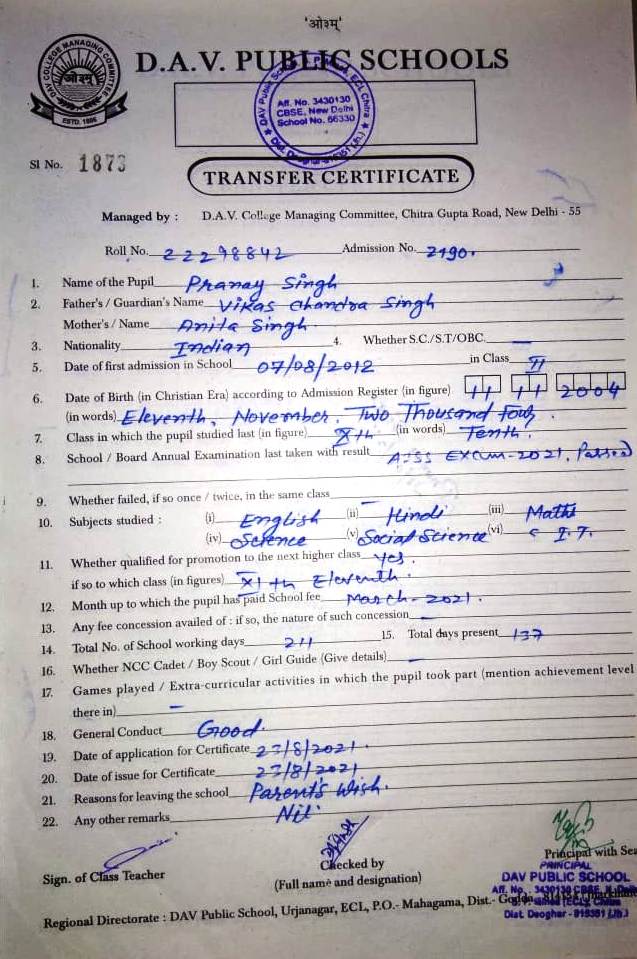 'ओ३म्'
DAV COLLEGE MANAGING COMMITTEE
ओ३म्
ESTD. 1886
D.A.V. PUBLIC SCHOOLS
DAV Public School ECL Chitra
Aff. No. 3430130
CBSE, New Delhi
School No. 66330
Dist. Deoghar-815351 (Jh.)
Sl No. 1873
TRANSFER CERTIFICATE
Managed by : D.A.V. College Managing Committee, Chitra Gupta Road, New Delhi - 55
Roll No. 22298842 Admission No. 2190.
1. Name of the Pupil Pranay Singh
2. Father's / Guardian's Name Vikas Chandra Singh
Mother's / Name Anita Singh
3. Nationality Indian 4. Whether S.C./S.T/OBC. —
5. Date of first admission in School 07/08/2012 in Class II
6. Date of Birth (in Christian Era) according to Admission Register (in figure) 11 11 2004
(in words) Eleventh, November, Two Thousand Four.
7. Class in which the pupil studied last (in figure) Xth (in words) Tenth.
8. School / Board Annual Examination last taken with result AISS Exam-2021, Passed
9. Whether failed, if so once / twice, in the same class —
10. Subjects studied : (i) English (ii) Hindi (iii) Maths
(iv) Science (v) Social Science (vi) I.T.
11. Whether qualified for promotion to the next higher class yes.
if so to which class (in figures) XIth Eleventh.
12. Month up to which the pupil has paid School fee March-2021.
13. Any fee concession availed of : if so, the nature of such concession —
14. Total No. of School working days 211 15. Total days present 137
16. Whether NCC Cadet / Boy Scout / Girl Guide (Give details) —
17. Games played / Extra-curricular activities in which the pupil took part (mention achievement level
there in) —
18. General Conduct Good.
19. Date of application for Certificate 27/8/2021.
20. Date of issue for Certificate 27/8/2021
21. Reasons for leaving the school Parent's Wish.
22. Any other remarks Nil.
Sign. of Class Teacher
Checked by
(Full name and designation)
Principal with Sea
PRINCIPAL
DAV PUBLIC SCHOOL
Aff. No. 3430130 CBSE, N. Delhi
Dist. Deoghar - 815351 (Jh.)
Regional Directorate : DAV Public School, Urjanagar, ECL, P.O.- Mahagama, Dist.- Godda